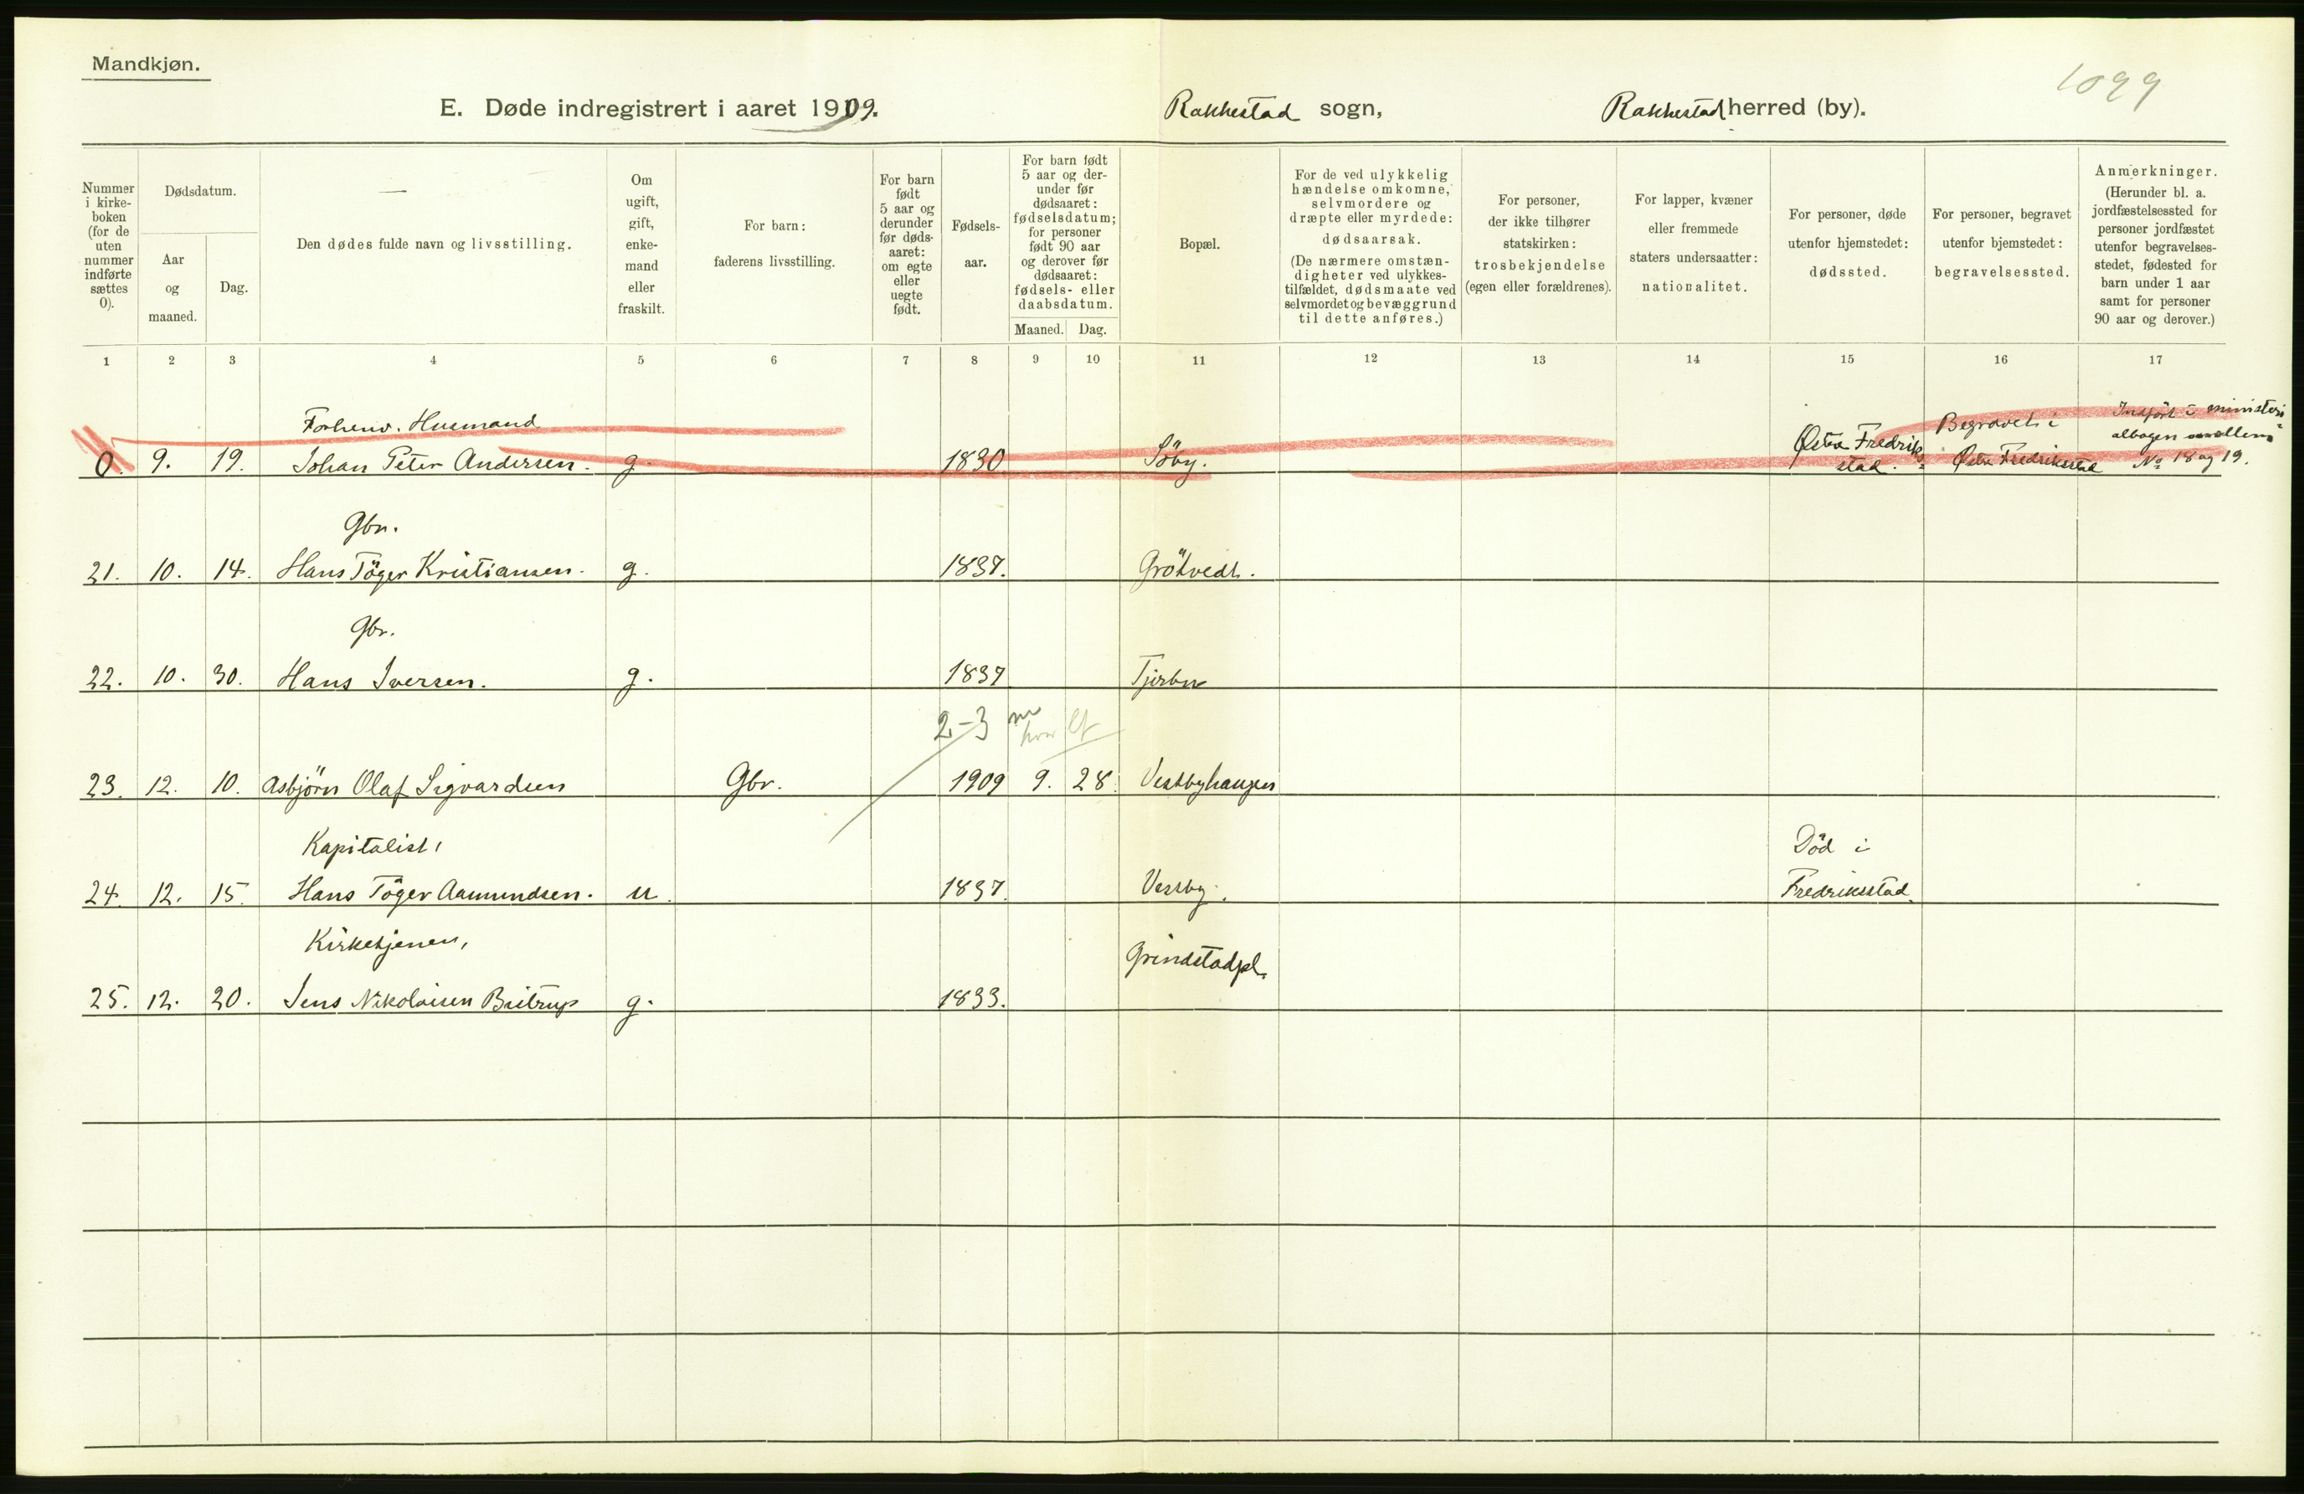 Mandkjøn.
1099
E. Døde indregistrert i aaret 1909. Rakkestad sogn, Rakkestad herred (by).
Nummer i kirke-boken (for de uten nummer indførte sættes 0).
Dødsdatum.
Aar og maaned.
Dag.
Den dødes fulde navn og livsstilling.
Om ugift, gift, enke-mand eller fraskilt.
For barn: faderens livsstilling.
For barn født 5 aar og derunder før døds-aaret: om egte eller uegte født.
Fødsels-aar.
For barn født 5 aar og der-under før dødsaaret: fødselsdatum; for personer født 90 aar og derover før dødsaaret: fødsels- eller daabsdatum.
Maaned. Dag.
Bopæl.
For de ved ulykkelig hændelse omkomne, selvmordere og dræpte eller myrdede: dødsaarsak. (De nærmere omstæn-digheter ved ulykkes-tilfældet, dødsmaate ved selvmordet og bevæggrund til dette anføres.)
For personer, der ikke tilhører statskirken: trosbekjendelse (egen eller forældrenes).
For lapper, kvæner eller fremmede staters undersaatter: nationalitet.
For personer, døde utenfor hjemstedet: dødssted.
For personer, begravet utenfor bjemstedet: begravelsessted.
Anmerkninger. (Herunder bl. a. jordfæstelsessted for personer jordfæstet utenfor begravelses-stedet, fødested for barn under 1 aar samt for personer 90 aar og derover.)
1 2 3 4 5 6 7 8 9 10 11 12 13 14 15 16 17
Forhenv. Husmand
0. 9. 19. Johan Peter Andersen. g. 1830 Söby. Østre Fredriks-stad. Begravet i Østre Fredriksstad Indført i ministeri-albogen mellem No 18 og 19.
Gbr.
21. 10. 14. Hans Töger Kristiansen. g. 1837. Grötvedt.
Gbr.
22. 10. 30. Hans Iversen. g. 1837
2-3 m
23. 12. 10. Asbjörn Olaf Sigvardsen Gbr. 1909 9. 28. Vestbyhaugen
Kapitalist,
24. 12. 15. Hans Töger Aamundsen. u. 1837. Vestby. Död i Fredriksstad.
Kirketjener,
Grindstadpl.
25. 12. 20. Jens Nikolaisen Bastrup g. 1833.